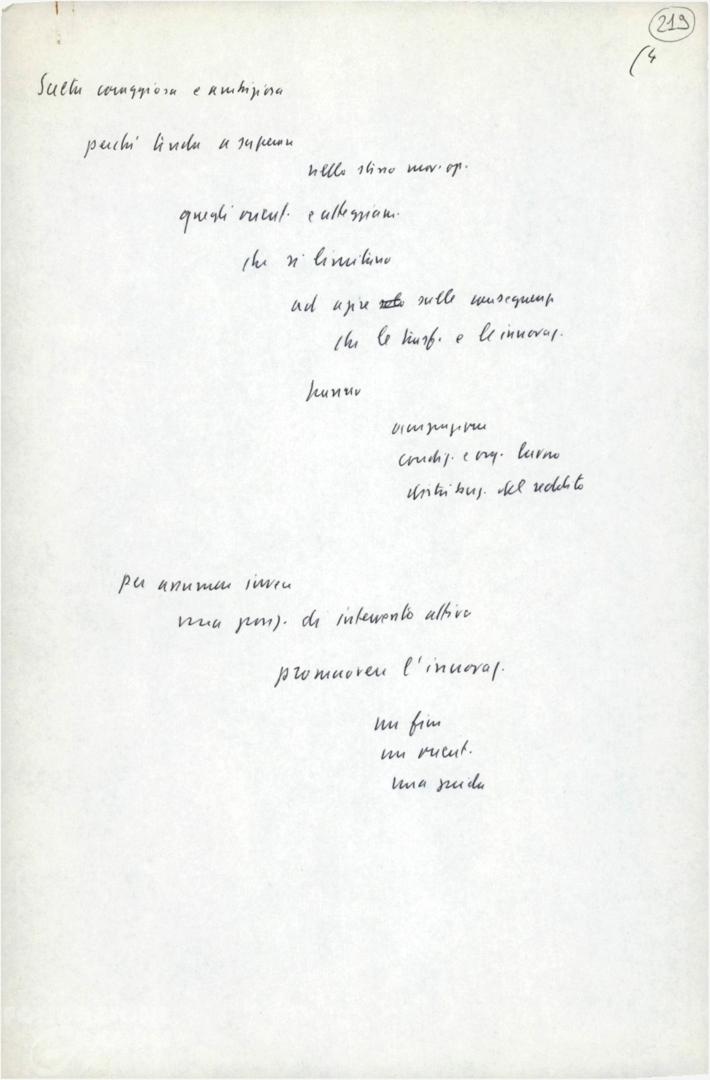 219
(4
Scelta coraggiosa e ambiziosa
perché tende a superare
nello stesso mov. op.
quegli orient. e atteggiam.
che si limitano
ad agire solo sulle conseguenze
che le trasf. e le innovaz.
hanno
occupazione
condiz. e org. lavoro
distribuz. del reddito
per assumere invece
una posiz. di intervento attivo
promuovere l'innovaz.
un fine
un orient.
una guida